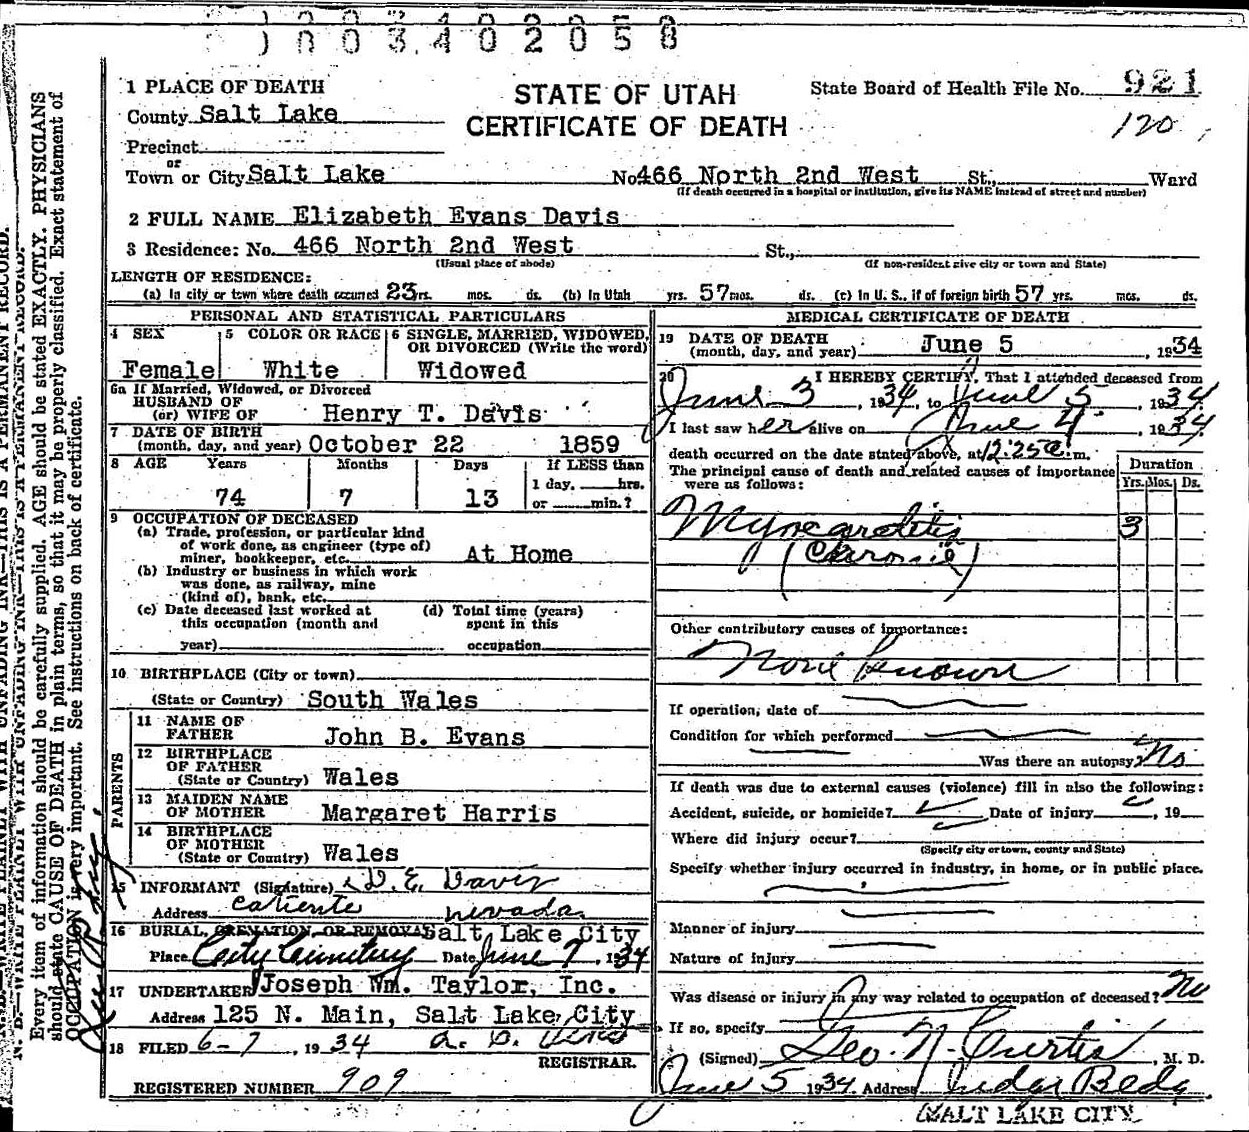 1003402058
1 PLACE OF DEATH
STATE OF UTAH
CERTIFICATE OF DEATH
State Board of Health File No. 921
120
County Salt Lake
Precinct
or
Town or City Salt Lake No 466 North 2nd West St., Ward
(If death occurred in a hospital or institution, give its NAME instead of street and number)
2 FULL NAME Elizabeth Evans Davis
3 Residence: No. 466 North 2nd West St.,
(Usual place of abode) (If non-resident give city or town and State)
LENGTH OF RESIDENCE:
(a) In city or town where death occurred 23 yrs. mos. ds. (b) In Utah yrs. 57 mos. ds. (c) In U. S., if of foreign birth 57 yrs. mos. ds.
PERSONAL AND STATISTICAL PARTICULARS
4 SEX 5 COLOR OR RACE 6 SINGLE, MARRIED, WIDOWED, OR DIVORCED (Write the word)
Female White Widowed
6a If Married, Widowed, or Divorced
HUSBAND OF
(or) WIFE OF Henry T. Davis
7 DATE OF BIRTH
(month, day, and year) October 22 1859
8 AGE Years Months Days If LESS than
1 day, hrs.
74 7 13 or min.?
9 OCCUPATION OF DECEASED
(a) Trade, profession, or particular kind
of work done, as engineer (type of)
miner, bookkeeper, etc. At Home
(b) Industry or business in which work
was done, as railway, mine
(kind of), bank, etc.
(c) Date deceased last worked at (d) Total time (years)
this occupation (month and spent in this
year) occupation
10 BIRTHPLACE (City or town)
(State or Country) South Wales
PARENTS
11 NAME OF
FATHER John B. Evans
12 BIRTHPLACE
OF FATHER
(State or Country) Wales
13 MAIDEN NAME
OF MOTHER Margaret Harris
14 BIRTHPLACE
OF MOTHER
(State or Country) Wales
15 INFORMANT (Signature) D. E. Davis
Address Caliente Nevada
16 BURIAL, CREMATION, OR REMOVAL Salt Lake City
Place City Cemetery Date June 7, 1934
17 UNDERTAKER Joseph Wm. Taylor, Inc.
Address 125 N. Main, Salt Lake City
18 FILED 6-7, 1934
REGISTRAR.
REGISTERED NUMBER 909
MEDICAL CERTIFICATE OF DEATH
19 DATE OF DEATH
(month, day, and year) June 5, 1934
20 I HEREBY CERTIFY, That I attended deceased from
June 3, 1934, to June 5, 1934
I last saw her alive on June 4, 1934
death occurred on the date stated above, at 12:25 a. m.
The principal cause of death and related causes of importance
were as follows:
Duration
Yrs. Mos. Ds.
Myocarditis 3
(Chronic)
Other contributory causes of importance:
None known
If operation, date of
Condition for which performed
Was there an autopsy? No
If death was due to external causes (violence) fill in also the following:
Accident, suicide, or homicide? Date of injury , 19
Where did injury occur?
(Specify city or town, county and State)
Specify whether injury occurred in industry, in home, or in public place.
Manner of injury
Nature of injury
Was disease or injury in any way related to occupation of deceased? No
If so, specify
(Signed) Geo. N. Curtis, M. D.
June 5 1934 Address Judge Bldg
SALT LAKE CITY
N. B.—WRITE PLAINLY WITH UNFADING INK—THIS IS A PERMANENT RECORD.
Every item of information should be carefully supplied. AGE should be stated EXACTLY. PHYSICIANS
should state CAUSE OF DEATH in plain terms, so that it may be properly classified. Exact statement of
OCCUPATION is very important. See instructions on back of certificate.